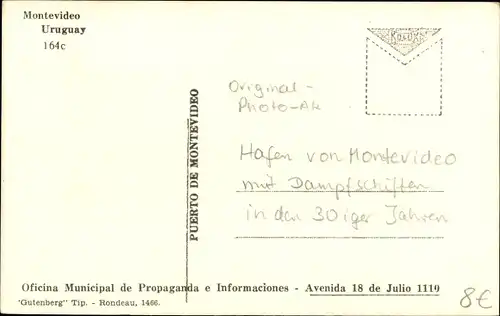 Montevideo
Uruguay
164c
KODAK
Original-
Photo-AK
PUERTO DE MONTEVIDEO
Hafen von Montevideo
mit Dampfschiffen
in den 30iger Jahren
Oficina Municipal de Propaganda e Informaciones - Avenida 18 de Julio 1119
'Gutenberg" Tip. - Rondeau, 1466.
8€